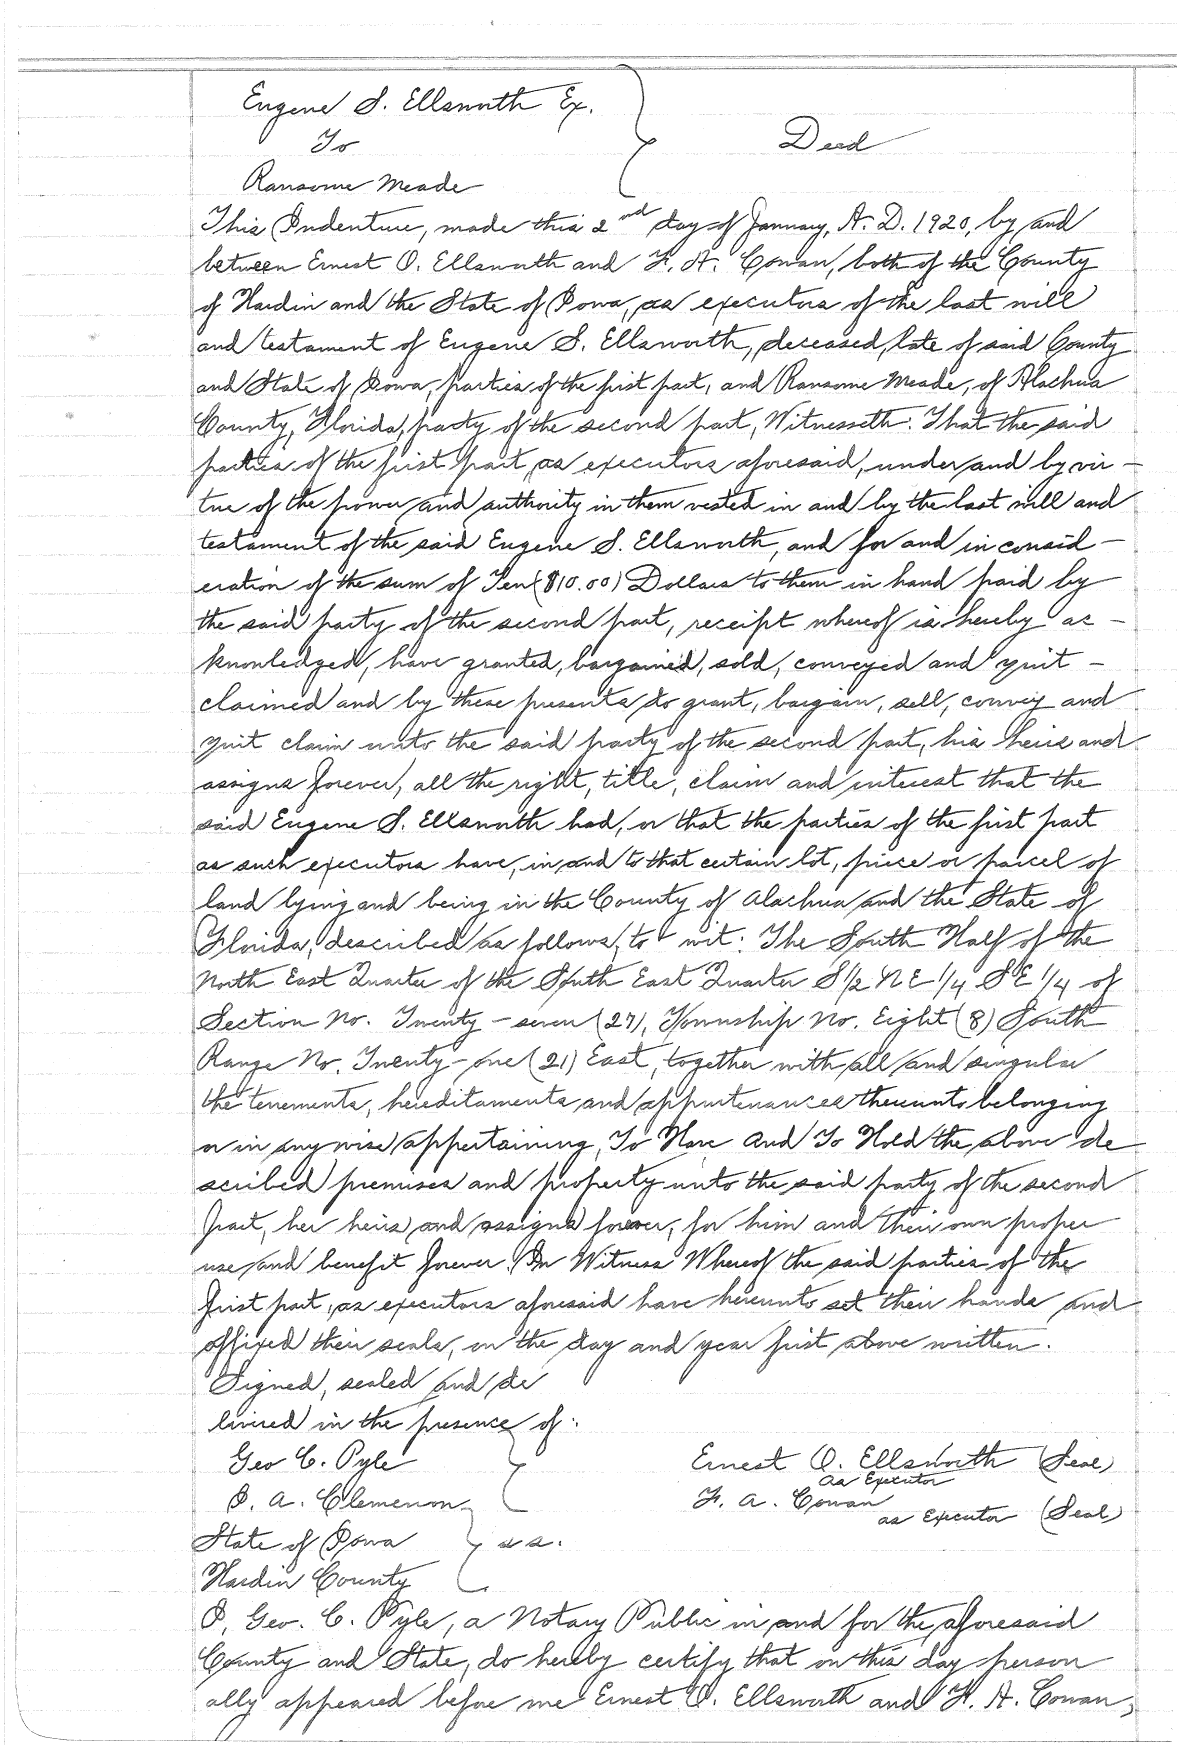 Eugene S. Ellsworth Ex.
To
Deed
Ransome Meade
This Indenture, made this 2nd day of January, A. D. 1920, by and
between Ernest O. Ellsworth and F. A. Cowan, both of the County
of Hardin and the State of Iowa, as executors of the last will
and testament of Eugene S. Ellsworth, deceased, late of said County
and State of Iowa, parties of the first part, and Ransome Meade, of Alachua
County, Florida, party of the second part, Witnesseth: That the said
parties of the first part, as executors aforesaid, under and by vir-
tue of the power and authority in them vested in and by the last will and
testament of the said Eugene S. Ellsworth, and for and in consid-
eration of the sum of Ten ($10.00) Dollars to them in hand paid by
the said party of the second part, receipt whereof is hereby ac-
knowledged, have granted, bargained, sold, conveyed and quit-
claimed and by these presents do grant, bargain, sell, convey and
quit claim unto the said party of the second part, his heirs and
assigns forever, all the right, title, claim and interest that the
said Eugene S. Ellsworth had, or that the parties of the first part
as such executors have, in and to that certain lot, piece or parcel of
land lying and being in the County of Alachua and the State of
Florida, described as follows, to wit: The South Half of the
North East Quarter of the South East Quarter S 1/2 NE 1/4 SE 1/4 of
Section No. Twenty-seven (27), Township No. Eight (8) South
Range No. Twenty-one (21) East, together with all and singular
the tenements, hereditaments and appurtenances thereunto belonging
or in anywise appertaining, To Have And To Hold the above de
scribed premises and property unto the said party of the second
part, her heirs and assigns forever, for him and their own proper
use and benefit forever. In Witness Whereof the said parties of the
first part, as executors aforesaid have hereunto set their hands and
affixed their seals, on the day and year first above written.
Signed, sealed and de
livered in the presence of:
Geo C. Pyle
Ernest O. Ellsworth (Seal)
as Executor
I. A. Clemenon
F. A. Cowan
as Executor (Seal)
State of Iowa
s s.
Hardin County
I, Geo. C. Pyle, a Notary Public in and for the aforesaid
County and State, do hereby certify that on this day person
ally appeared before me Ernest O. Ellsworth and F. A. Cowan,